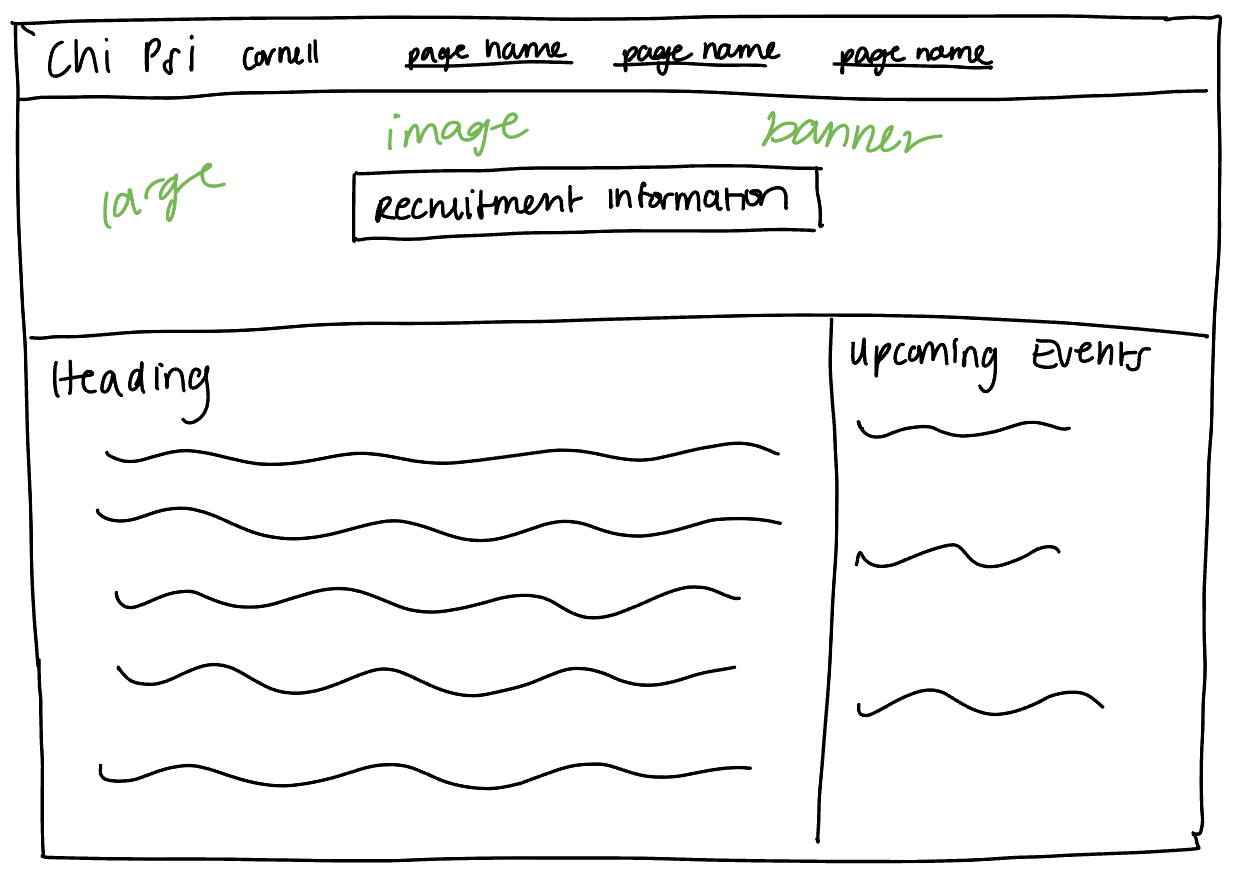 Chi Psi Cornell page name page name page name
large image banner
Recruitment Information
Heading
Upcoming Events